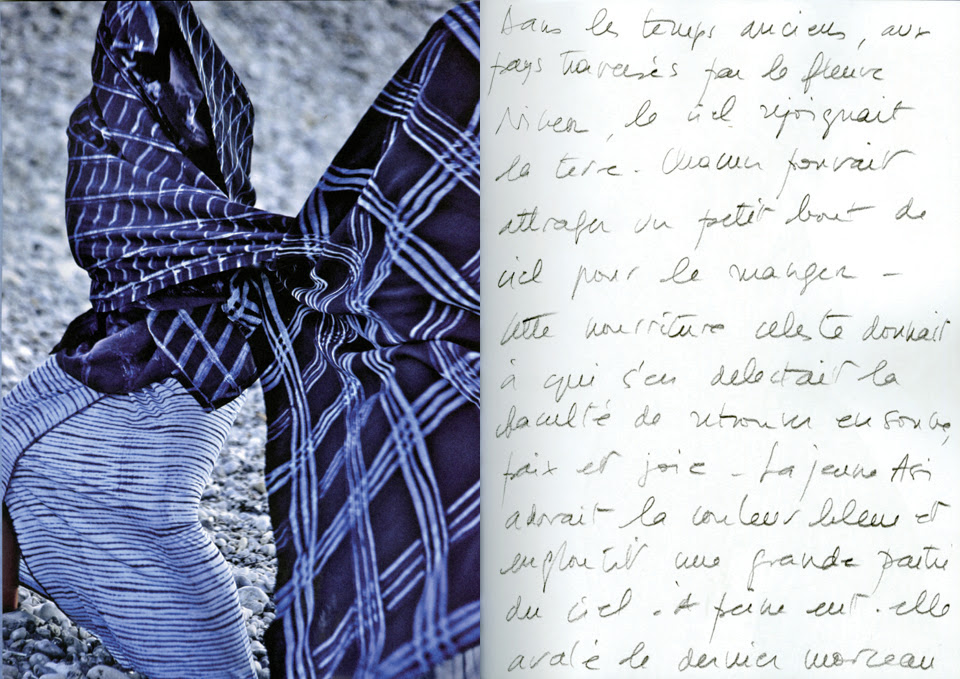 Dans les temps anciens, aux
pays traversés par le fleuve
Niger, le ciel rejoignait
la terre. Chacun pouvait
attraper un petit bout de
ciel pour le manger -
Cette nourriture celeste donnait
à qui s'en delectait la
faculté de retrouver en songe,
paix et joie - La jeune Asi
adorait la couleur bleue et
engloutit une grande partie
du ciel. A peine eut-elle
avalé le dernier morceau